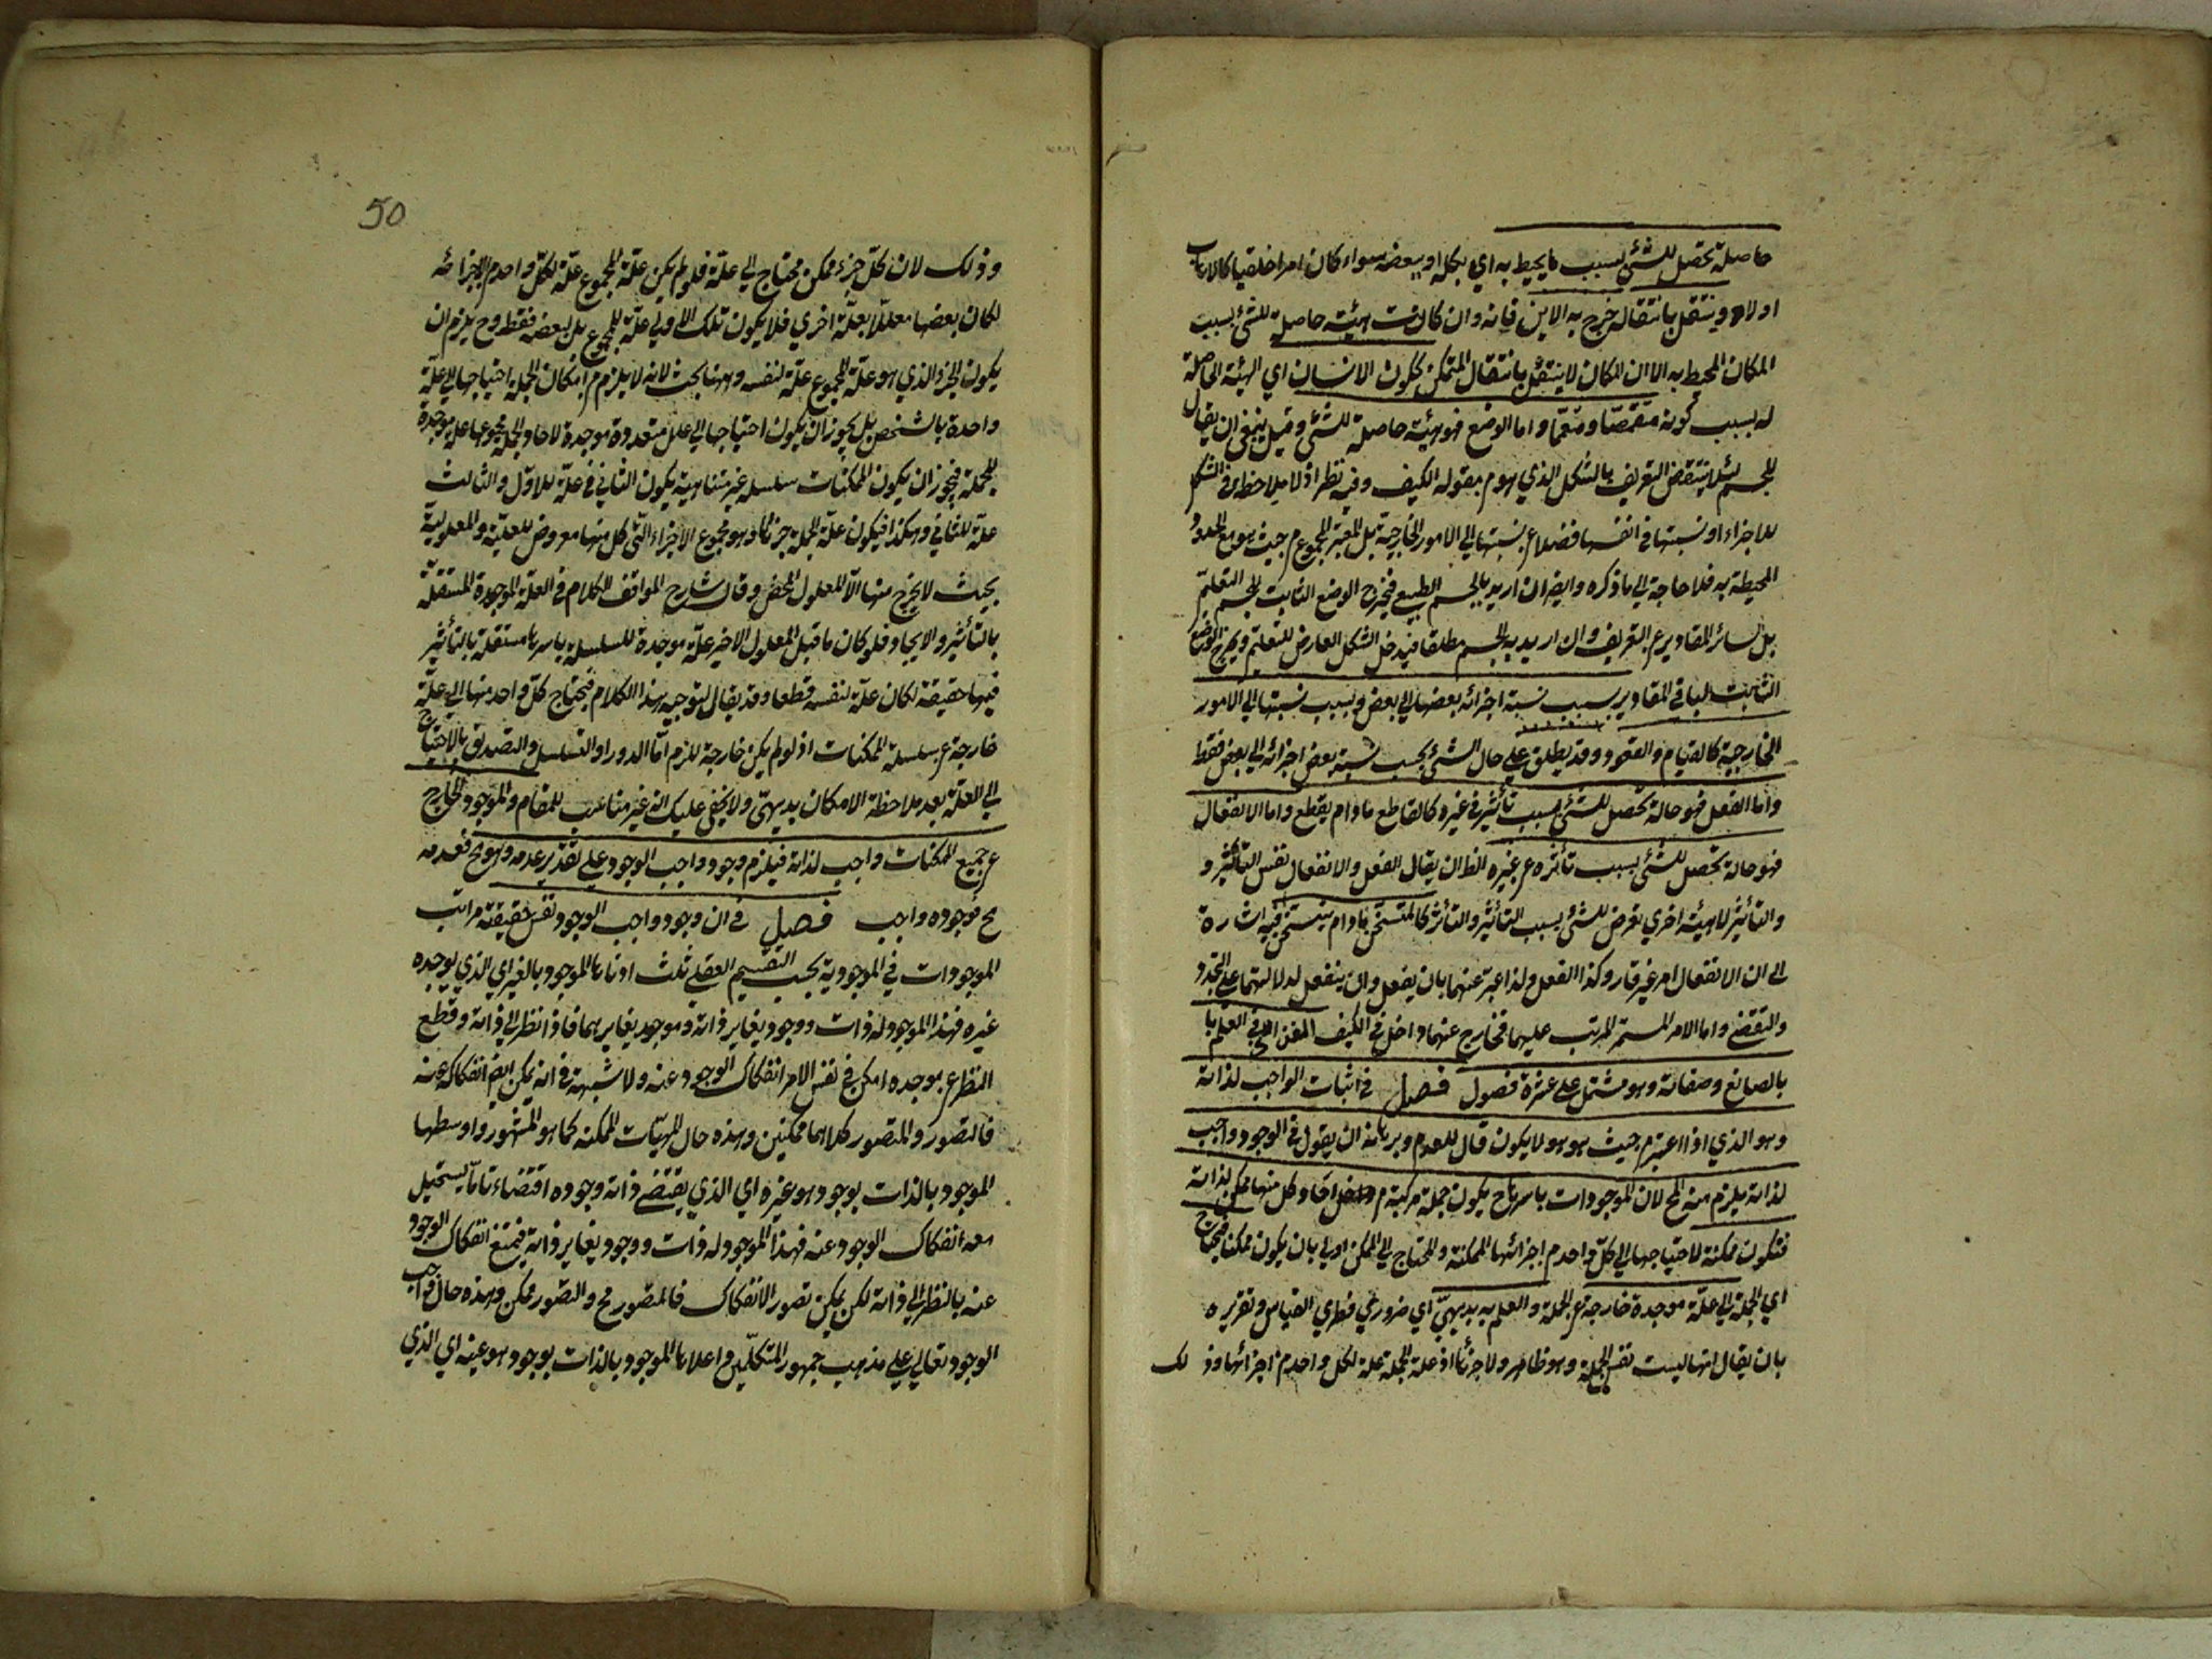 حاصلة تحصل للشئ بسبب ما يحيط به اي بكله او ببعضه سواء كان امرا خلقيا كالاهاب
او لا وينتقل بانتقاله خرج به الاين فانه وان كانت هيئة حاصلة للشئ بسبب
المكان المحيط به الا ان المكان لا ينتقل بانتقال المتمكن ككون الانسان اي الهيئة الحاصلة
له بسبب كونه متقمصا ومتعمما واما الوضع فهو هيئة حاصلة للشئ وقيل ينبغي ان يقال
للجسم لئلا ينتقض التعريف بالشكل الذي هو م مقولة الكيف وفيه نظر اذ لا ملاحظة في الشكل
للاجزاء او نسبتها في انفسها فضلا ع نسبتها الي الامور الخارجية بل المعتبر المجموع م حيث هو مع الحدود
المحيطة به فلا حاجة الي ما ذكره وايض ان اريد بالجسم الطبيعي فيخرج الوضع الثابت للجسم التعليمي
بل لسائر المقادير ع التعريف وان اريد به الجسم مطلقا فيدخل الشكل العارض للتعليمي ويخرج الوضع
الثابت لباقي المقادير بسبب نسبة اجزائه بعضها الي بعض وبسبب نسبتها الي الامور
الخارجية كالقيام والقعود وقد يطلق علي حال الشئ بحسب نسبة بعض اجزائه الي بعض فقط
واما الفعل فهو حالة تحصل للشئ بسبب تأثيره في غيره كالقاطع ما دام يقطع واما الانفعال
فهو حالة تحصل للشئ بسبب تأثره ع غيره الظ ان يقال الفعل والانفعال نفس التأثير و
والتأثر لا هيئة اخري تعرض للشئ بسبب التأثير والتأثر كالمتسخن ما دام يتسخن فيه اشارة
الي ان الانفعال امر غير قار وكذا الفعل ولذا عبر عنهما بان يفعل وان ينفعل لدلالتهما علي التجدد
والتقضي واما الامر المستمر المرتب عليهما فخارج عنهما داخل في الكيف الفن الثاني في العلم با
بالصانع وصفاته وهو مشتمل علي عشرة فصول فصل في اثبات الواجب لذاته
وهو الذي اذا اعتبر م حيث هو هو لا يكون قابلا للعدم وبرهانه ان يقول ان لم يكن في الوجود واجب
لذاته يلزم منه المح لان الموجودات باسرها ح يكون جملة مركبة م احاد كل منها ممكن لذاته
فتكون ممكنة لاحتياجها الي كل واحد م اجزائها الممكنة والمحتاج الي الممكن اولي بان يكون ممكنا فتحتاج
اي الجملة الي علة موجدة خارجة ع الجملة والعلم به بديهي اي ضروري فطري القياس وتقريره
بان يقال انها ليست نفس الجملة وهو ظاهر ولا جزئها اذ علة الجملة علة لكل واحد م اجزائها وذ لك
50
وذلك لان كل جزء ممكن محتاج الي علة فلو لم يكن علة المجموع علة لكل واحد م الاجزاء
لكان بعضها معللا بعلة اخري فلا يكون تلك الاولي علة للمجموع بل لبعضه فقط وح يلزم ان
يكون الجزء الذي هو علة المجموع علة لنفسه وههنا بحث لانه لا يلزم م امكان الجملة احتياجها الي علة
واحدة بالشخص بل يجوز ان يكون احتياجها الي علل متعددة موجدة لاحاد الجملة مجموعها علة موجدة
للجملة فيجوز ان يكون الممكنات سلسلة غير متناهية يكون الثاني فى علة للاول والثالث
علة للثاني وهكذا فيكون علة الجملة جزئها وهو مجموع الاجزاء التي كل منها معروض للعلية والمعلولية
بحيث لا يخرج منها الا المعلول المحض وقال شارح المواقف الكلام في العلة الموجدة المستقلة
بالتأثير والايجاد فلو كان ما قبل المعلول الاخير علة موجدة للسلسلة باسرها مستقلة بالتأثير
فيها حقيقة لكان علة لنفسه قطعا وقد يقال لتوجيه هذا الكلام فيحتاج كل واحد منها الي علة
خارجة ع سلسلة الممكنات اذ لو لم يكن خارجة للزم اما الدور او التسلسل والتصديق بالاحتياج
الي العلة بعد ملاحظة الامكان بديهي ولا يخفي عليك انه غير مناسب للمقام والموجود الخارج
ع جميع الممكنات واجب لذاته فيلزم وجود واجب الوجود علي تقدير عدمه وهو مح فعدمه
مح فوجوده واجب فصل في ان وجود واجب الوجود نفس حقيقته مراتب
الموجودات في الموجودية بحسب التقسيم العقلي ثلث ادناها الموجود بالغير اي الذي يوجده
غيره فهذا الموجود له ذات ووجود يغاير ذاته وموجد يغايرهما فاذا نظر الي ذاته وقطع
النظر ع موجده امكن في نفس الامر انفكاك الوجود عنه ولا شبهة في انه يمكن ايض انفكاكه عنه
فالتصور والمتصور كلاهما ممكنين وهذه حال المهيات الممكنة كما هو المشهور واوسطها
الموجود بالذات بوجود هو غيره اي الذي يقتضي ذاته وجوده اقتضاء تاما يستحيل
معه انفكاك الوجود عنه فهذا الموجود له ذات ووجود يغاير ذاته فيمتنع انفكاك الوجود
عنه بالنظر الي ذاته لكن يمكن تصور الانفكاك فالمتصور مح والتصور ممكن وهذه حال واجب
الوجود تعالي علي مذهب جمهور المتكلمين واعلاها الموجود بالذات بوجود هو عينه اي الذي